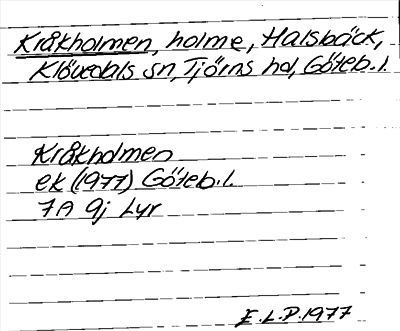 Kråkholmen, holme, Halsbäck,
Klövedals sn, Tjörns hd, Göteb.l.
Kråkholmen
ek (1977) Göteb.l.
7A 9j Lyr
E.L.P.1977